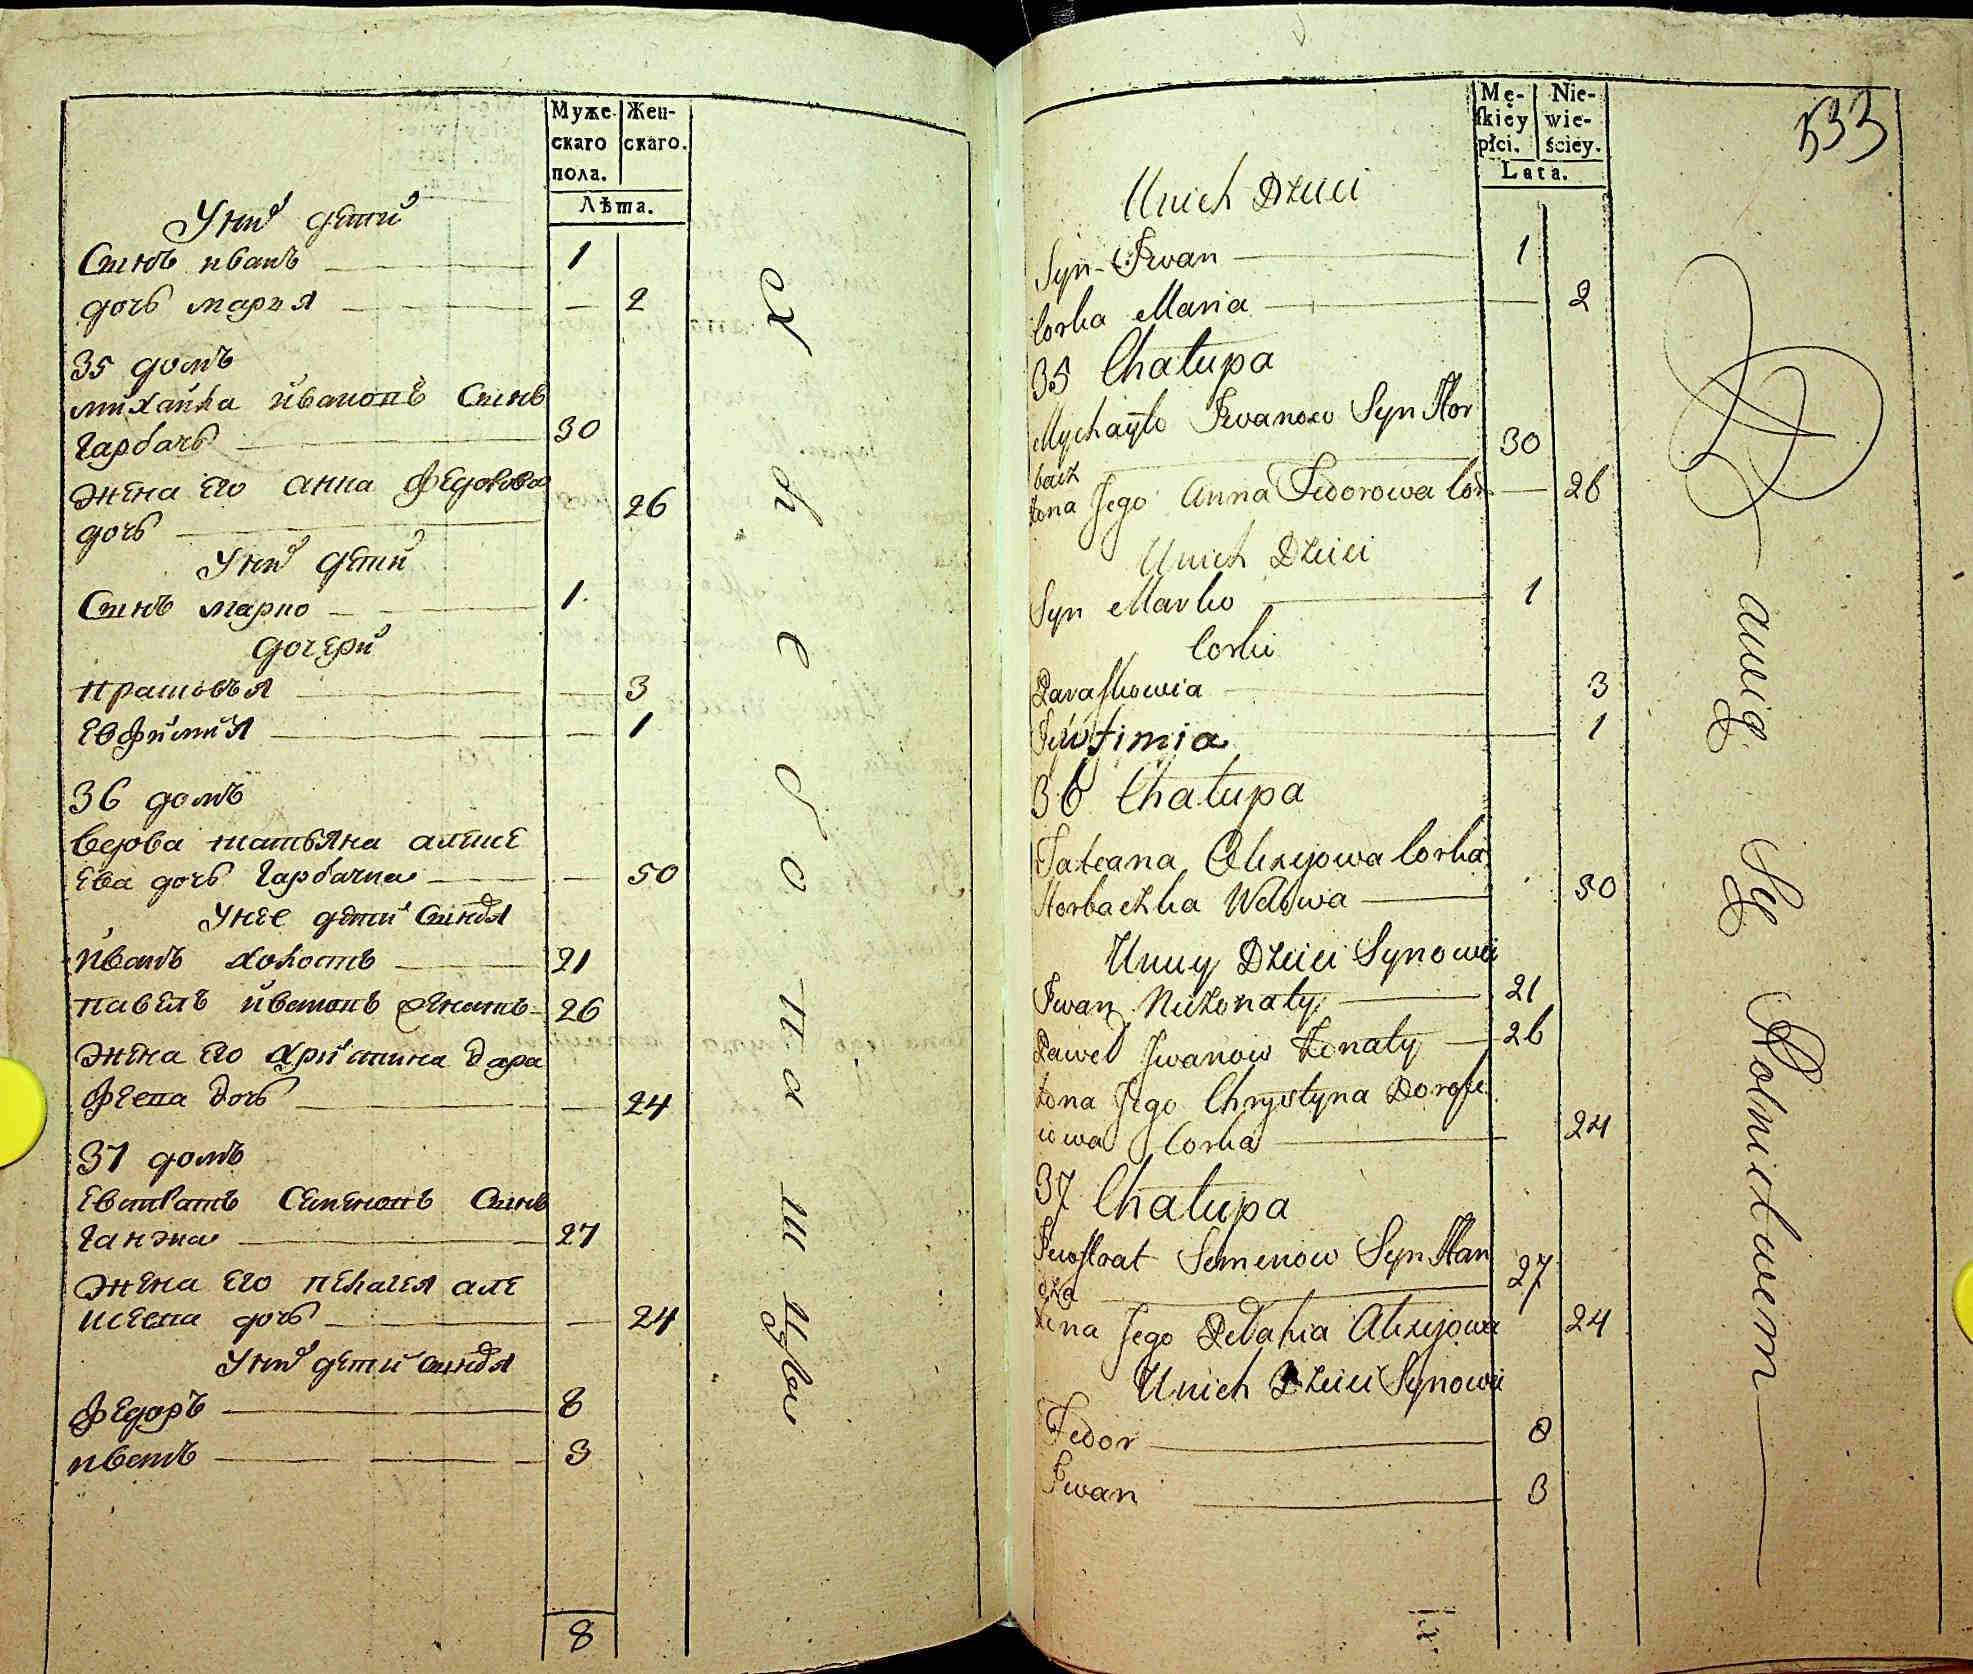 Муже
скаго
пола.
Жен-
скаго.
Лѣта.
У них дети
Сынъ иванъ 1
дочь марья 2
35 домъ
михайла ивановъ Сынъ
Гарбачь 30
жена его анна федорова
дочь 26
У них дети
Сынъ марко 1
дочери
прасковъя 3
Евфимия 1
36 домъ
вдова татьяна алексе
Ева дочь Гарбачка 50
У нее дети Сыновя
иванъ холостъ 21
павелъ ивановъ женатъ 26
жена его христина дара
феева дочь 24
37 домъ
Евстратъ Семеновъ Сынъ
Ганжа 27
жена его пелагея але
ксеева дочь 24
У них дети сыновя
федоръ 8
иванъ 3
8
533
Mę-
skiey
płci.
Nie-
wie-
ściey.
Lata.
Unich Dzieci
Syn Jwan 1
Corka Maria 2
35 Chałupa
Mychayło Jwanow Syn Hor
bacz 30
żona Jego Anna Fedorowa Cor 26
Unich Dzieci
Syn Marko 1
Corki
Paraskowia 3
Jewfimia 1
36 Chałupa
Tateana Alexejowa Corka
Horbaczka Wdowa 50
Uniey Dzieci Synowie
Jwan Nieżonaty 21
Paweł Jwanow Żonaty 26
żona Jego Chrystyna Dorofe
iowa Corka 24
37 Chałupa
Jewstrat Semenow Syn Han
dza 27
żona Jego Pelahia Alexejowa 24
Unich Dzieci Synowie
Fedor 8
Jwan 3
хлебопашцы
awią Się Rolnictwem